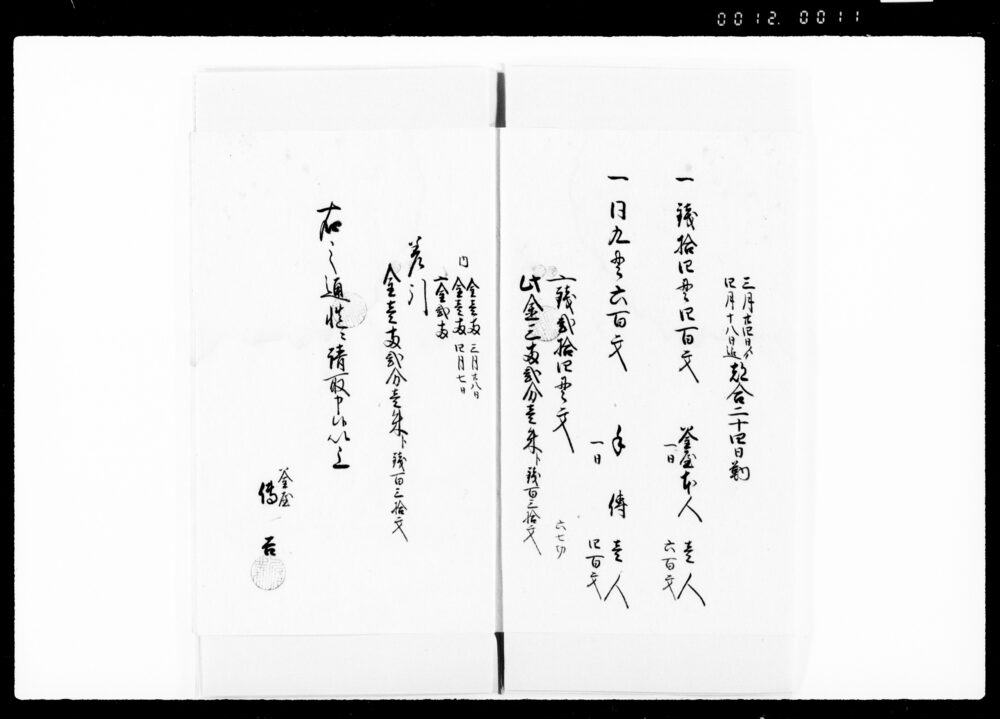 0012.0011
三月廿四日より
四月十八日迄
都合二十四日勤
一 銭拾四貫四百文 釜屋本人 壱人
一日 六百文
一 同九貫六百文 手傳 壱人
一日 四百文
〆銭弐拾四貫文
此金三両弐分壱朱ト銭百三拾文
六七切
内 金壱両 三月廿八日
金壱両 四月七日
〆金弐両
差引
金壱両弐分壱朱ト銭百三拾文
右之通慥ニ請取申候以上
釜屋
傳吉